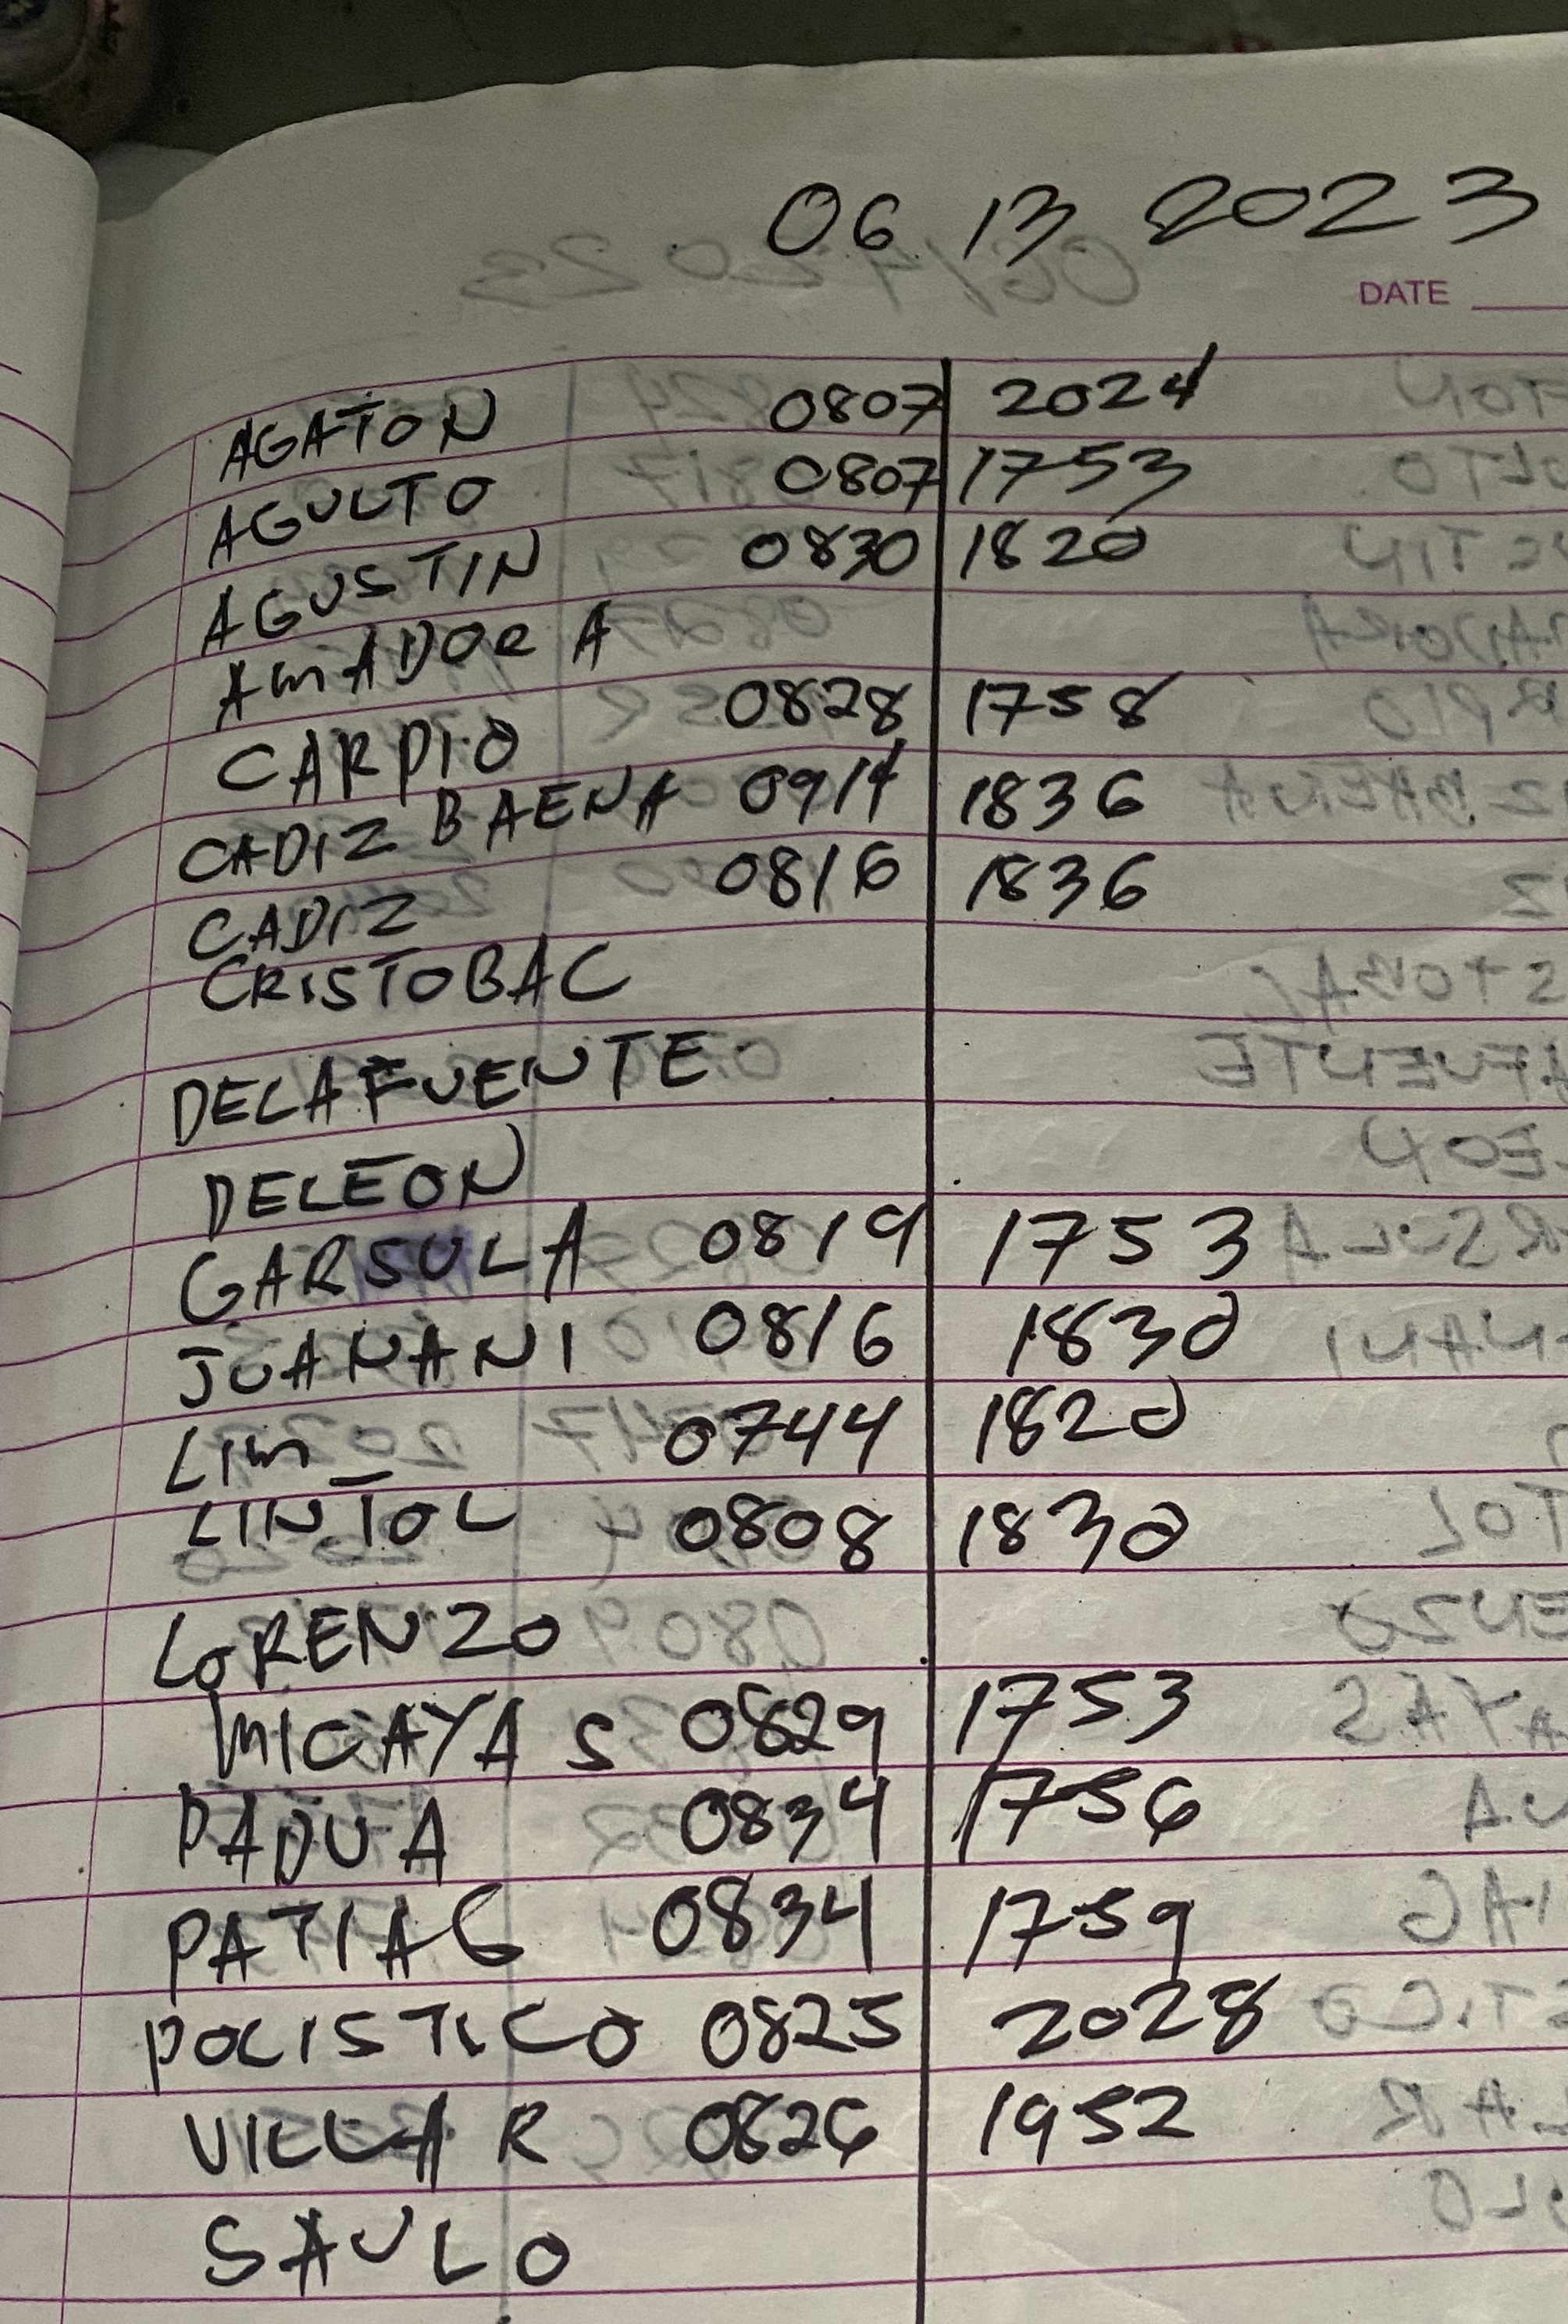 06 13 2023
DATE
AGATON 0807 2024
AGULTO 0807 1753
AGUSTIN 0830 1820
AMADORA
CARPIO 0828 1758
CADIZ BAENA 0914 1836
CADIZ 0816 1836
CRISTOBAL
DELAFUENTE
DELEON
GARSULA 0819 1753
JUANANI 0816 1830
LIM 0744 1820
LINTOL 0808 1830
LORENZO
MICAYAS 0829 1753
PADUA 0834 1756
PATIAG 0834 1759
POLISTICO 0825 2028
VILLAR 0826 1952
SAULO